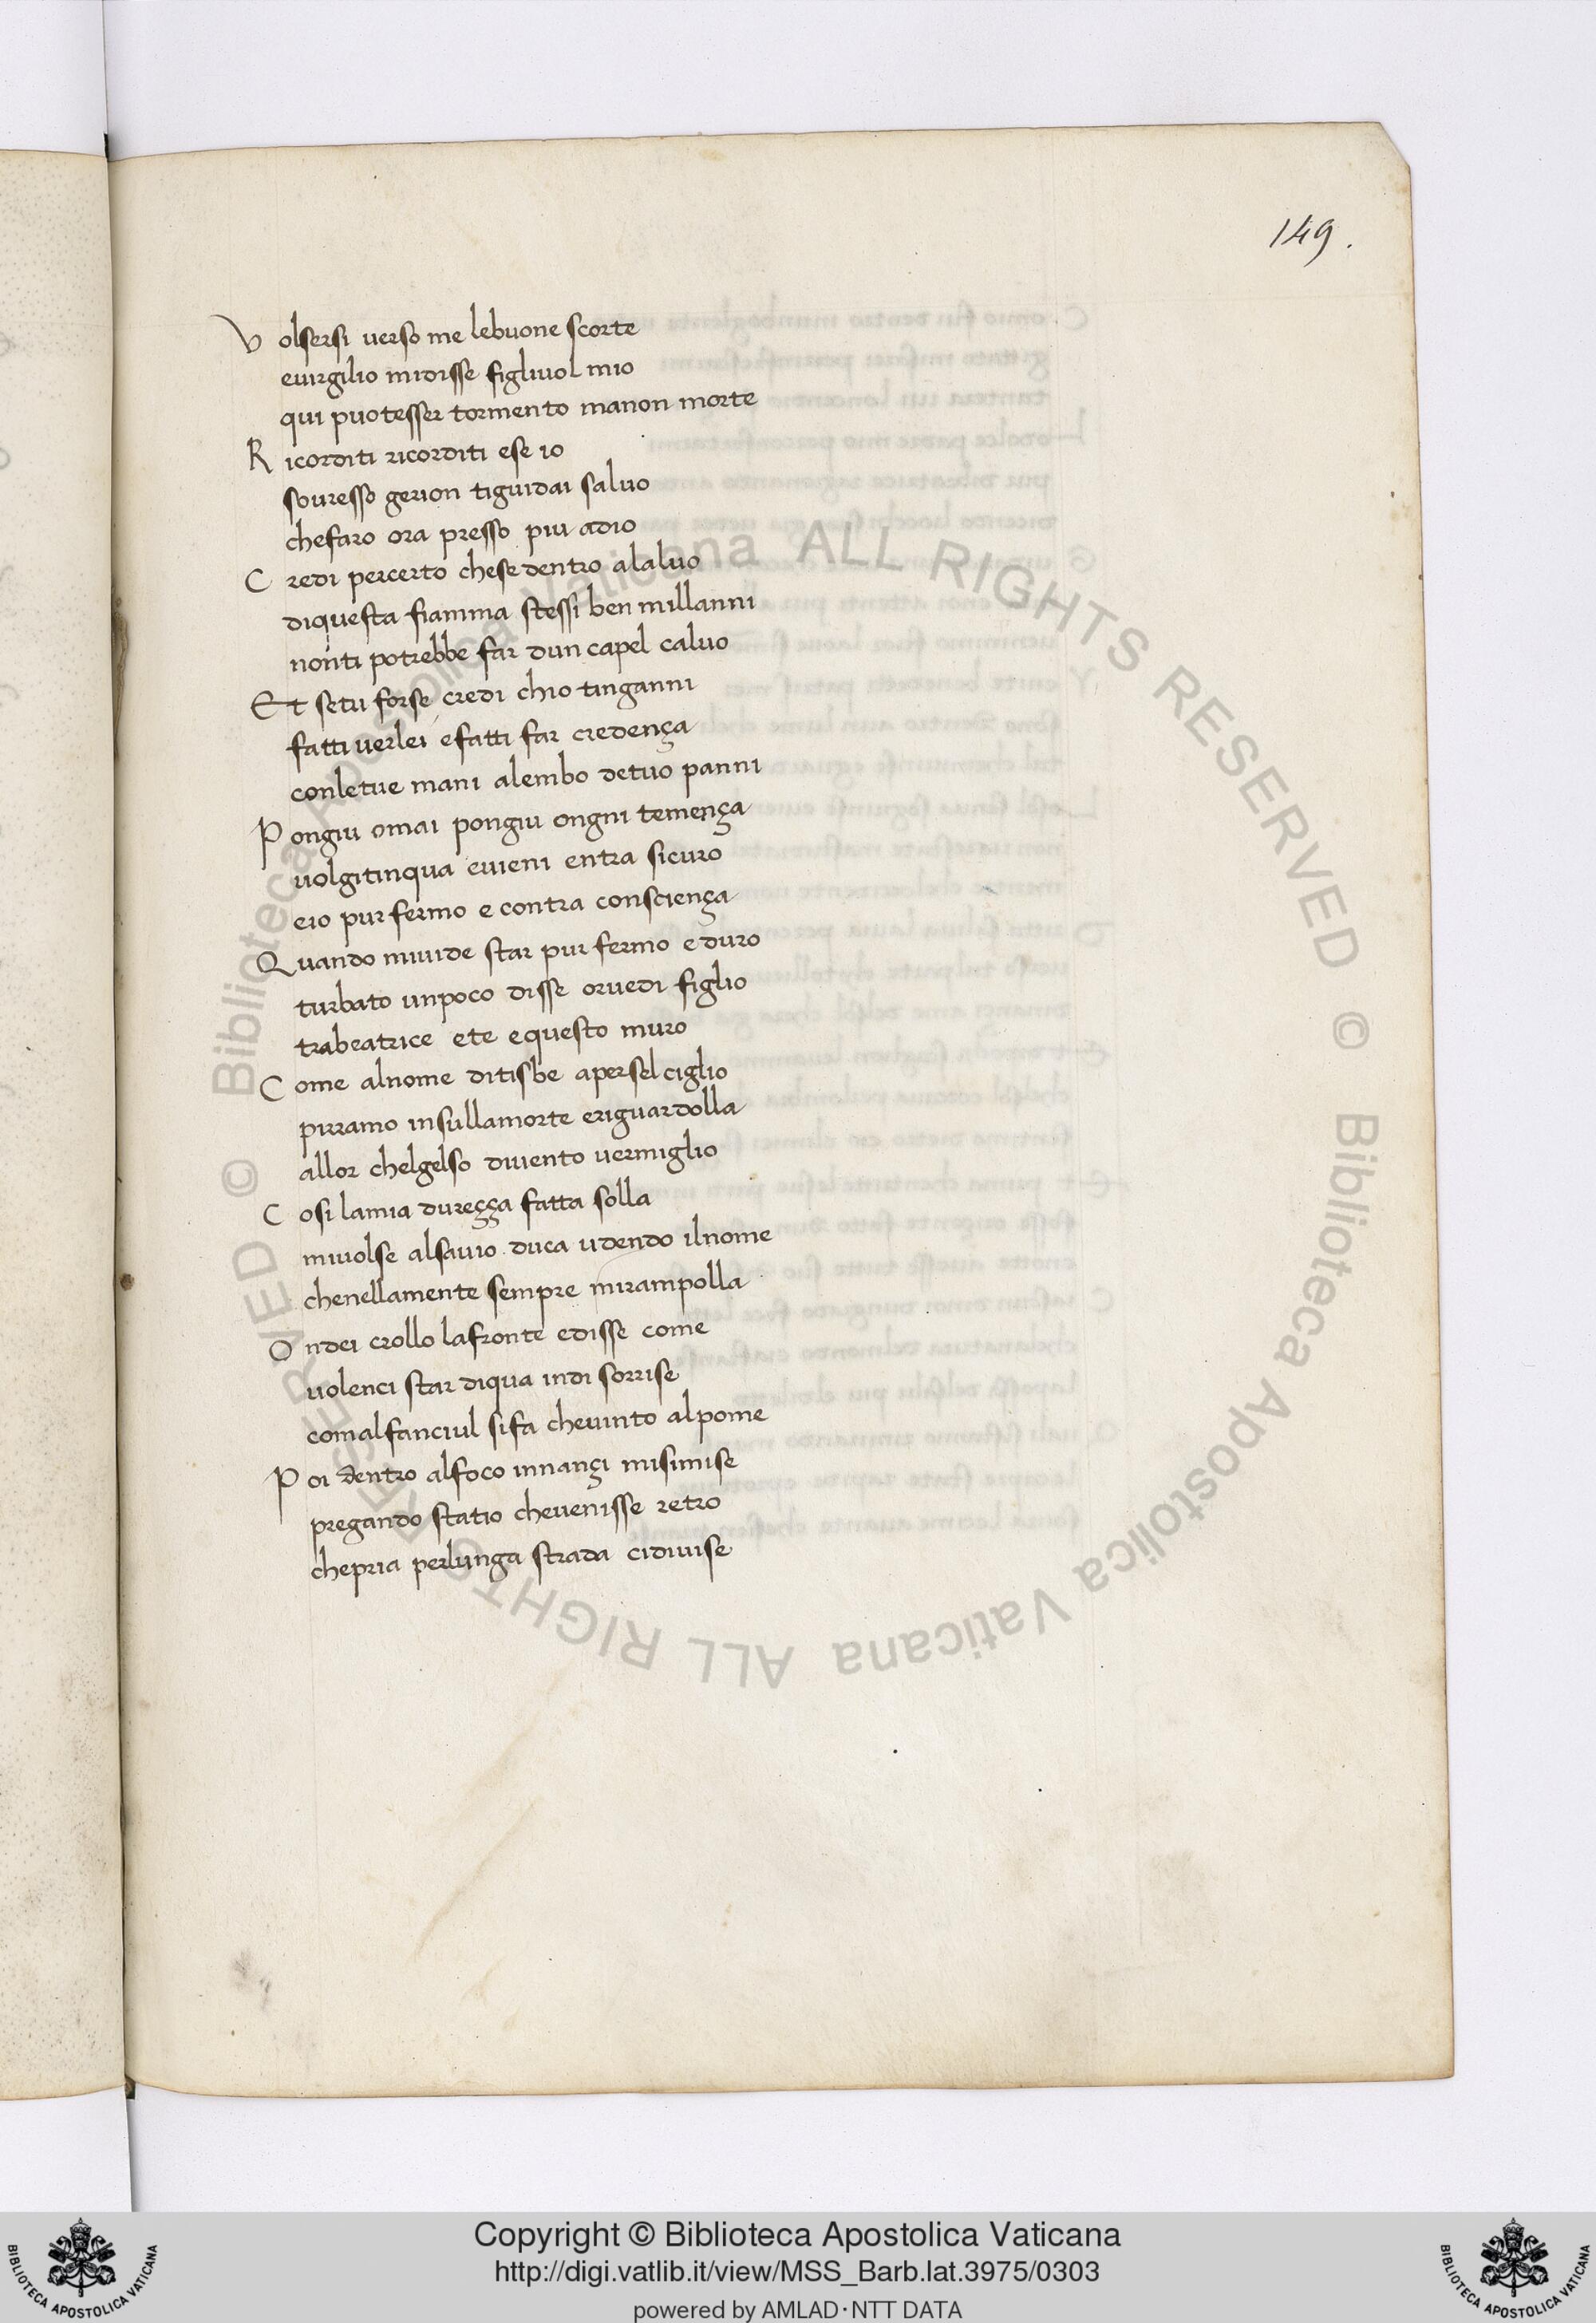 149.
Volsersi verso me lebuone scorte
euirgilio midisse figliuol mio
qui puotesser tormento manon morte
Ricorditi ricorditi ese io
souresso gerion tiguidai saluo
chefaro ora presso piu adio
Credi percerto chese dentro alaluo
diquesta fiamma stessi ben millanni
nonti potrebbe far dun capel caluo
Et setu forse credi chio tinganni
fatti uerlei efatti far credença
conletue mani alembo detuo panni
Pongiu omai pongiu ongni temença
uolgitinqua euieni entra sicuro
eio pur fermo e contra consciença
Quando miuide star pur fermo e duro
turbato unpoco disse oruedi figlio
trabeatrice ete equesto muro
Come alnome ditisbe apersel ciglio
pirramo insullamorte eriguardolla
allor chelgelso diuento vermiglio
Cosi lamia dureçça fatta solla
miuolse alsauio duca udendo ilnome
chenellamente sempre mirampolla
Ondei crollo lafronte edisse come
uolenci star diqua indi sorrise
comalfanciul sifa cheuinto alpome
Poi dentro alfoco innançi misimise
pregando statio chevenisse retro
chepria perlunga strada cidiuise
© Biblioteca Apostolica Vaticana ALL RIGHTS RESERVED © Biblioteca Apostolica Vaticana ALL RIGHTS RESERVED
BIBLIOTECA APOSTOLICA VATICANA
Copyright © Biblioteca Apostolica Vaticana
http://digi.vatlib.it/view/MSS_Barb.lat.3975/0303
powered by AMLAD·NTT DATA
BIBLIOTECA APOSTOLICA VATICANA